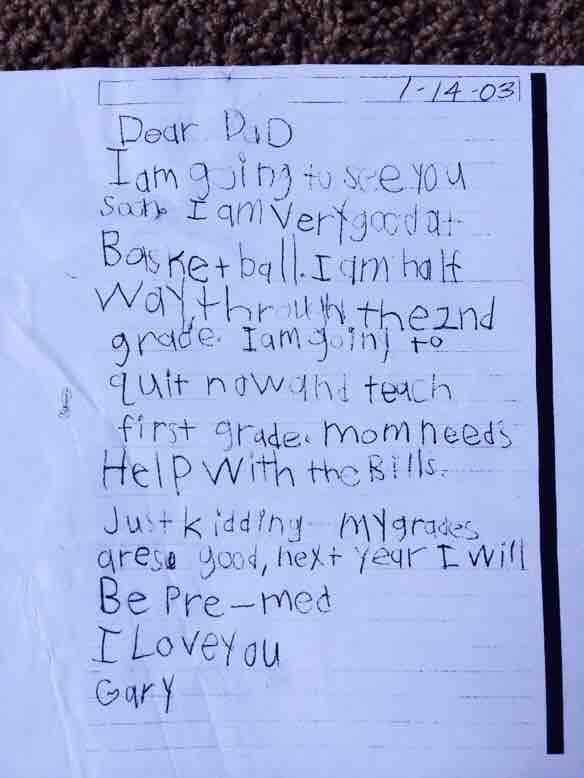 1-14-03
Dear DaD
I am going to see you
soon I am Very good at
Basketball. I am half
way through the 2nd
grade. I am going to
quit now and teach
first grade. mom needs
Help With the Bills.
Just kidding my grades
are so good, next year I will
Be Pre-med
I Love you
Gary